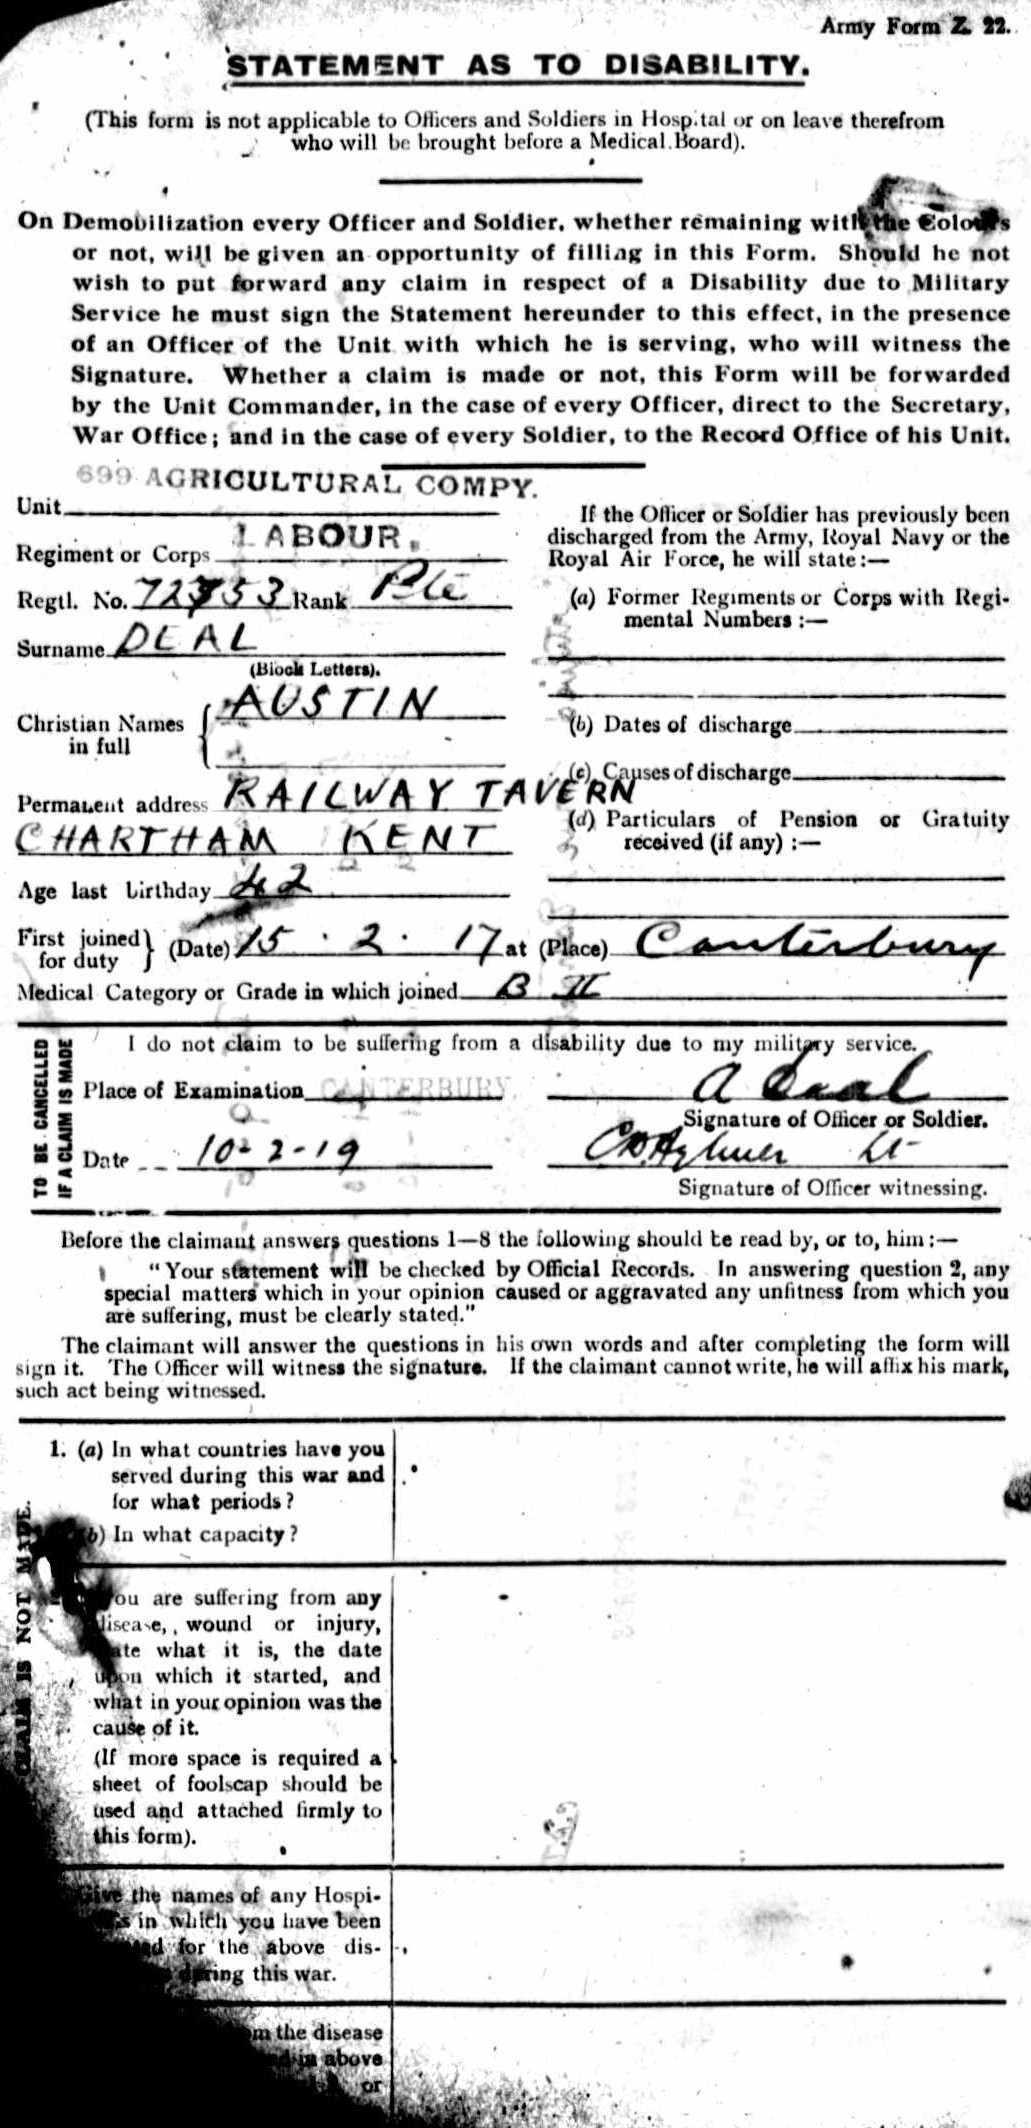 Army Form Z. 22.
STATEMENT AS TO DISABILITY.
(This form is not applicable to Officers and Soldiers in Hospital or on leave therefrom
who will be brought before a Medical Board).
On Demobilization every Officer and Soldier, whether remaining with the Colours
or not, will be given an opportunity of filling in this Form. Should he not
wish to put forward any claim in respect of a Disability due to Military
Service he must sign the Statement hereunder to this effect, in the presence
of an Officer of the Unit with which he is serving, who will witness the
Signature. Whether a claim is made or not, this Form will be forwarded
by the Unit Commander, in the case of every Officer, direct to the Secretary,
War Office; and in the case of every Soldier, to the Record Office of his Unit.
699 AGRICULTURAL COMPY.
Unit
Regiment or Corps LABOUR.
Regtl. No. 72353 Rank Pte
Surname DEAL
(Block Letters).
Christian Names in full AUSTIN
Permanent address RAILWAY TAVERN
CHARTHAM KENT
Age last birthday 42
If the Officer or Soldier has previously been
discharged from the Army, Royal Navy or the
Royal Air Force, he will state:—
(a) Former Regiments or Corps with Regi-
mental Numbers :—
(b) Dates of discharge
(c) Causes of discharge
(d) Particulars of Pension or Gratuity
received (if any) :—
First joined for duty (Date) 15 . 2 . 17 at (Place) Canterbury
Medical Category or Grade in which joined B II
TO BE CANCELLED
IF A CLAIM IS MADE
I do not claim to be suffering from a disability due to my military service.
Place of Examination CANTERBURY
A Deal
Signature of Officer or Soldier.
Date 10-2-19
Lt
Signature of Officer witnessing.
Before the claimant answers questions 1—8 the following should be read by, or to, him:—
"Your statement will be checked by Official Records. In answering question 2, any
special matters which in your opinion caused or aggravated any unfitness from which you
are suffering, must be clearly stated."
The claimant will answer the questions in his own words and after completing the form will
sign it. The Officer will witness the signature. If the claimant cannot write, he will affix his mark,
such act being witnessed.
CLAIM IS NOT MADE.
1. (a) In what countries have you
served during this war and
for what periods?
(b) In what capacity?
you are suffering from any
disease, wound or injury,
state what it is, the date
upon which it started, and
what in your opinion was the
cause of it.
(If more space is required a
sheet of foolscap should be
used and attached firmly to
this form).
Give the names of any Hospi-
in which you have been
for the above dis-
during this war.
the disease
above
or